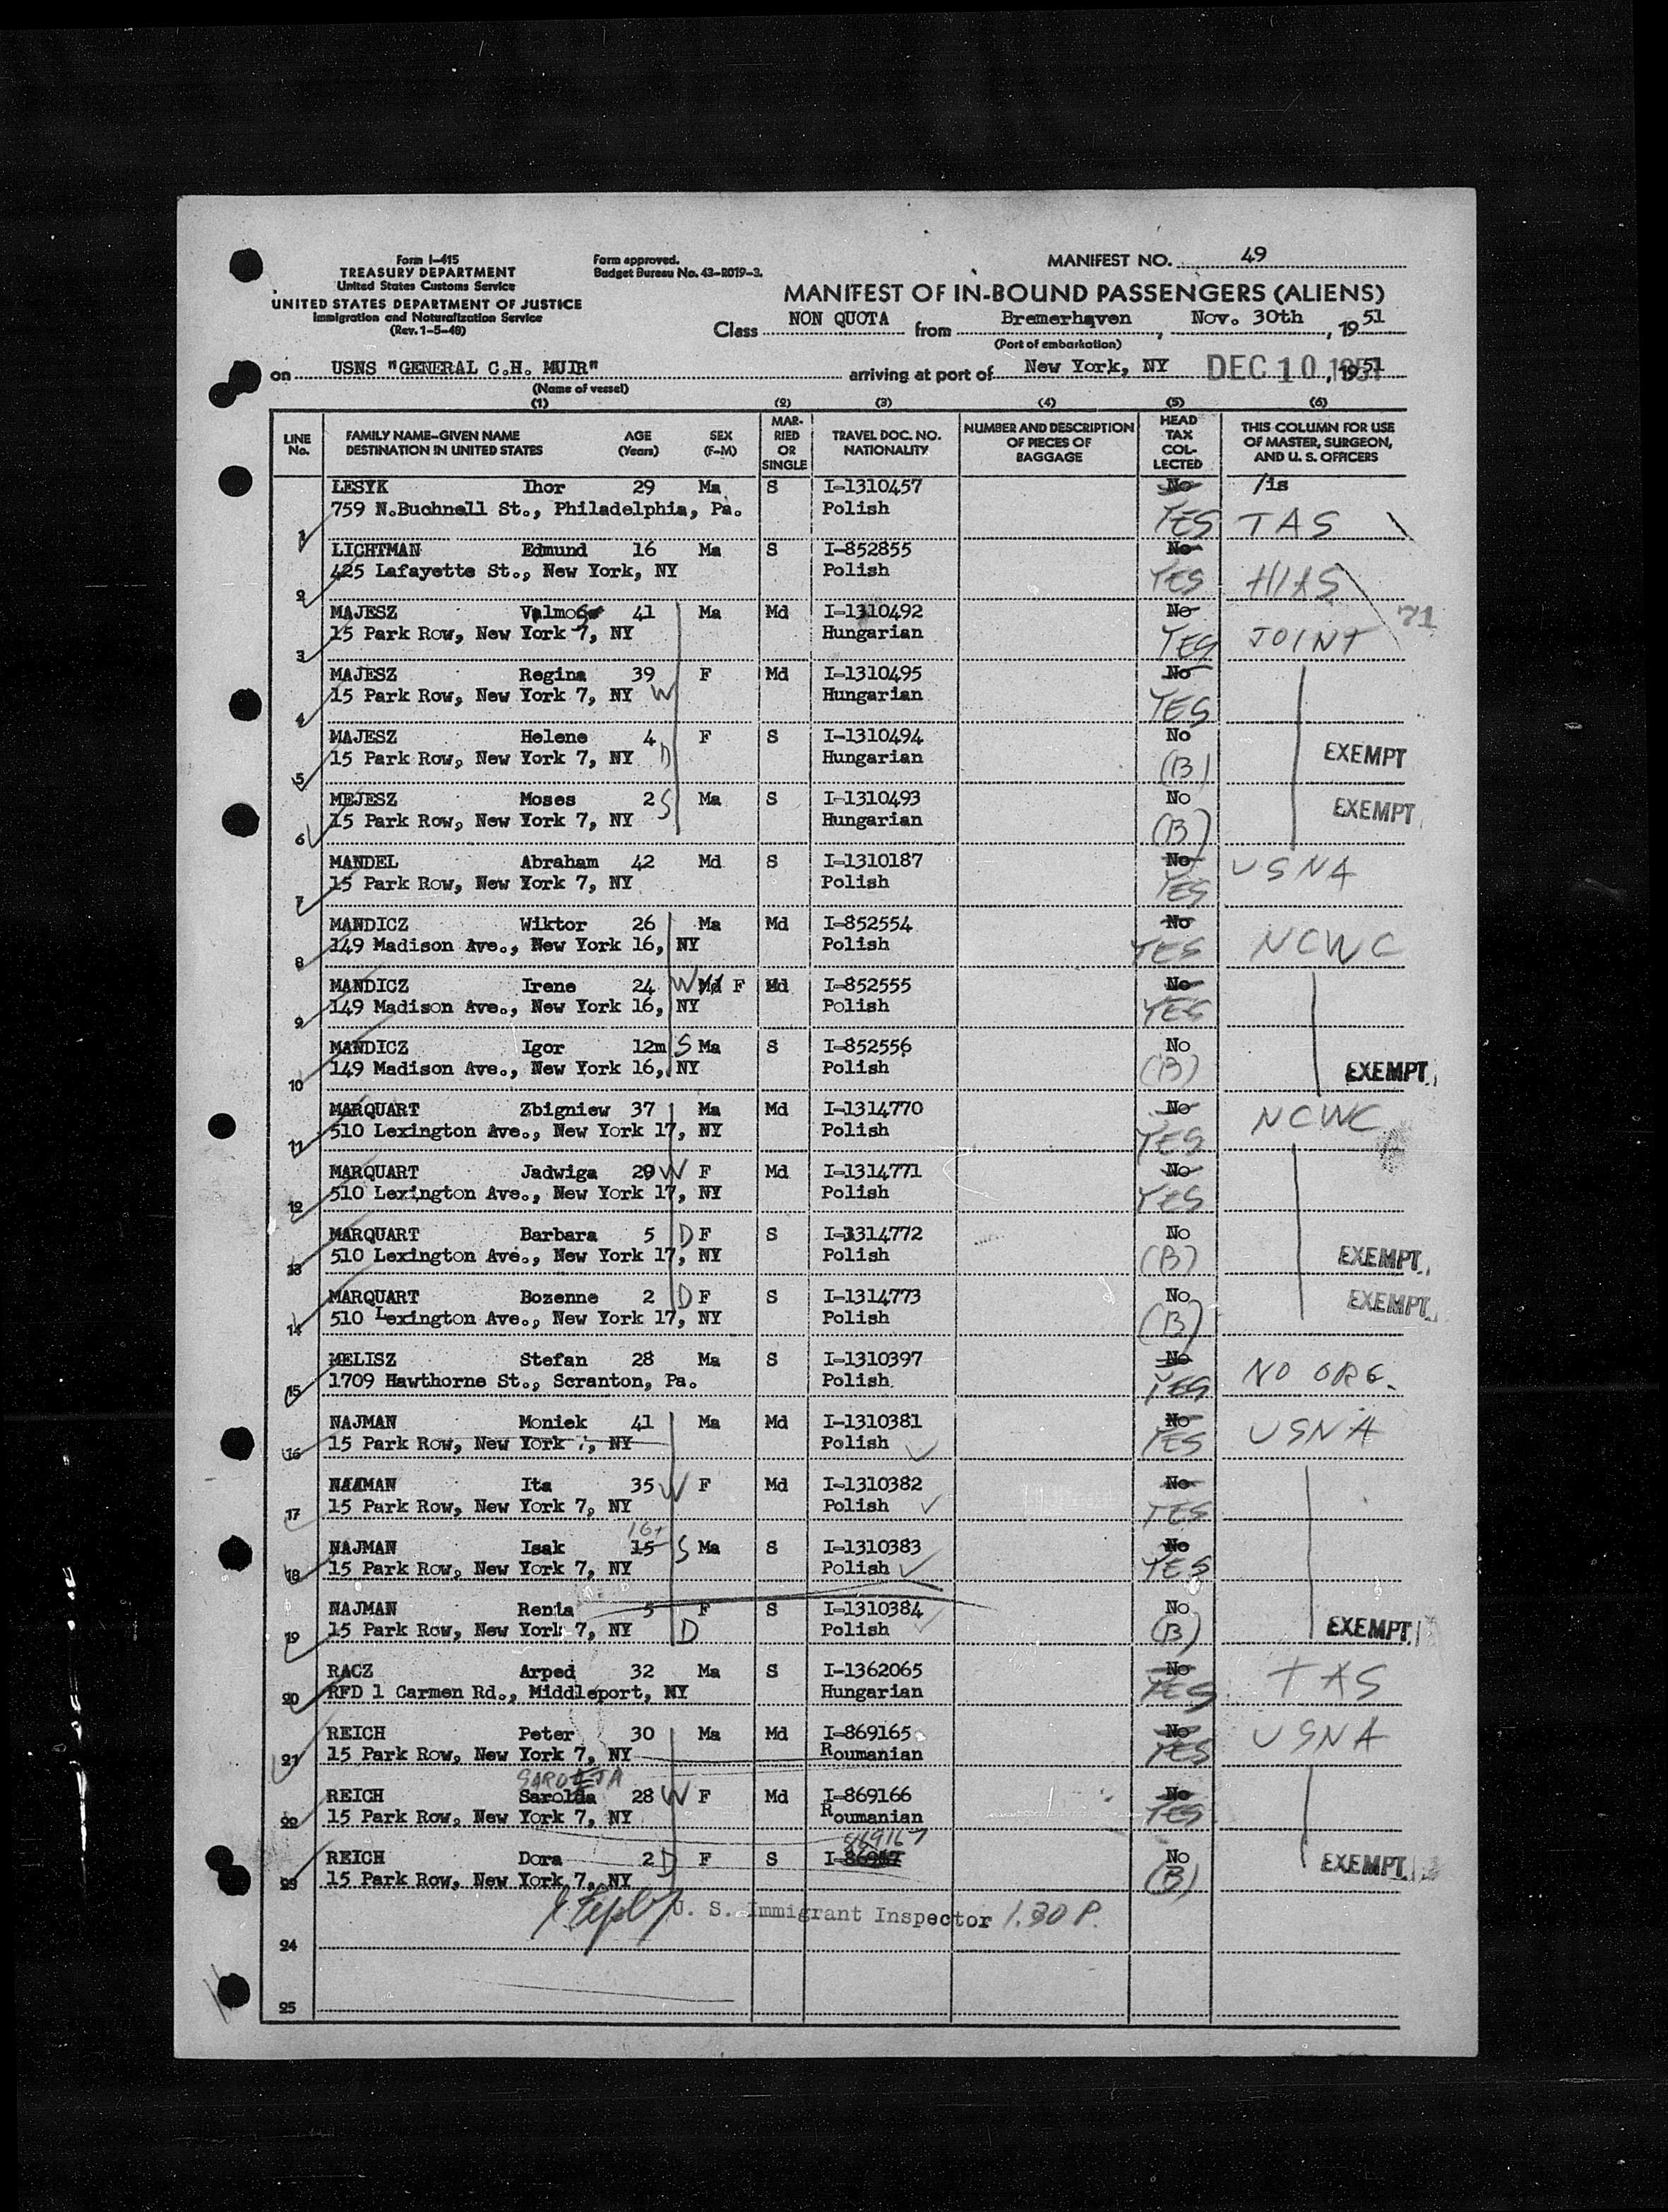 Form I-415
TREASURY DEPARTMENT
United States Customs Service
UNITED STATES DEPARTMENT OF JUSTICE
Immigration and Naturalization Service
(Rev. 1-5-49)
Form approved.
Budget Bureau No. 43-R019-3.
MANIFEST NO. 49
MANIFEST OF IN-BOUND PASSENGERS (ALIENS)
Class NON QUOTA from Bremerhaven, Nov. 30th, 1951
(Port of embarkation)
on USNS "GENERAL C.H. MUIR" arriving at port of New York, NY DEC 10 1951, 1951
(Name of vessel)
(1) (2) (3) (4) (5) (6)
LINE No. FAMILY NAME—GIVEN NAME DESTINATION IN UNITED STATES AGE (Years) SEX (F-M) MARRIED OR SINGLE TRAVEL DOC. NO. NATIONALITY NUMBER AND DESCRIPTION OF PIECES OF BAGGAGE HEAD TAX COLLECTED THIS COLUMN FOR USE OF MASTER, SURGEON, AND U. S. OFFICERS
LESYK Ihor 29 Ma S I-1310457 No /is
1 759 N.Buchnell St., Philadelphia, Pa. Polish YES TAS
LICHTMAN Edmund 16 Ma S I-852855 No
2 425 Lafayette St., New York, NY Polish YES HIAS
MAJESZ 41 Ma Md I-1310492 No 71
3 15 Park Row, New York 7, NY Hungarian YES JOINT
MAJESZ Regina 39 F Md I-1310495 No
4 15 Park Row, New York 7, NY W Hungarian YES
MAJESZ Helene 4 F S I-1310494 No
5 15 Park Row, New York 7, NY D Hungarian (B) EXEMPT
MEJESZ Moses 2 S Ma S I-1310493 No
6 15 Park Row, New York 7, NY Hungarian (B) EXEMPT
MANDEL Abraham 42 Md S I-1310187 No USNA
7 15 Park Row, New York 7, NY Polish YES
MANDICZ Wiktor 26 Ma Md I-852554 No
8 149 Madison Ave., New York 16, NY Polish YES NCWC
MANDICZ Irene 24 W Md F Md I-852555 No
9 149 Madison Ave., New York 16, NY Polish YES
MANDICZ Igor 12m S Ma S I-852556 No
10 149 Madison Ave., New York 16, NY Polish (B) EXEMPT
MARQUART Zbigniew 37 Ma Md I-1314770 No NCWC
11 510 Lexington Ave., New York 17, NY Polish YES
MARQUART Jadwiga 29 W F Md I-1314771 No
12 510 Lexington Ave., New York 17, NY Polish YES
MARQUART Barbara 5 D F S I-1314772 No
13 510 Lexington Ave., New York 17, NY Polish (B) EXEMPT
MARQUART Bozenne 2 D F S I-1314773 No
14 510 Lexington Ave., New York 17, NY Polish (B) EXEMPT
MELISZ Stefan 28 Ma S I-1310397 No
15 1709 Hawthorne St., Scranton, Pa. Polish YES NO ORG.
NAJMAN Moniek 41 Ma Md I-1310381 No USNA
16 15 Park Row, New York 7, NY Polish YES
NAJMAN Ita 35 W F Md I-1310382 No
17 15 Park Row, New York 7, NY Polish YES
16+
NAJMAN Isak 15 S Ma S I-1310383 No
18 15 Park Row, New York 7, NY Polish YES
NAJMAN Renia 5 F S I-1310384 No
19 15 Park Row, New York 7, NY D Polish (B) EXEMPT
RACZ Arped 32 Ma S I-1362065 No TAS
20 RFD 1 Carmen Rd., Middleport, NY Hungarian YES
REICH Peter 30 Ma Md I-869165 No USNA
21 15 Park Row, New York 7, NY Roumanian YES
REICH Sarolda 28 W F Md I-869166 No
22 15 Park Row, New York 7, NY Roumanian YES
869167
REICH Dora 2 D F S I-86967 No
23 15 Park Row, New York 7, NY (B) EXEMPT
U. S. Immigrant Inspector 1.30 P.
24
25